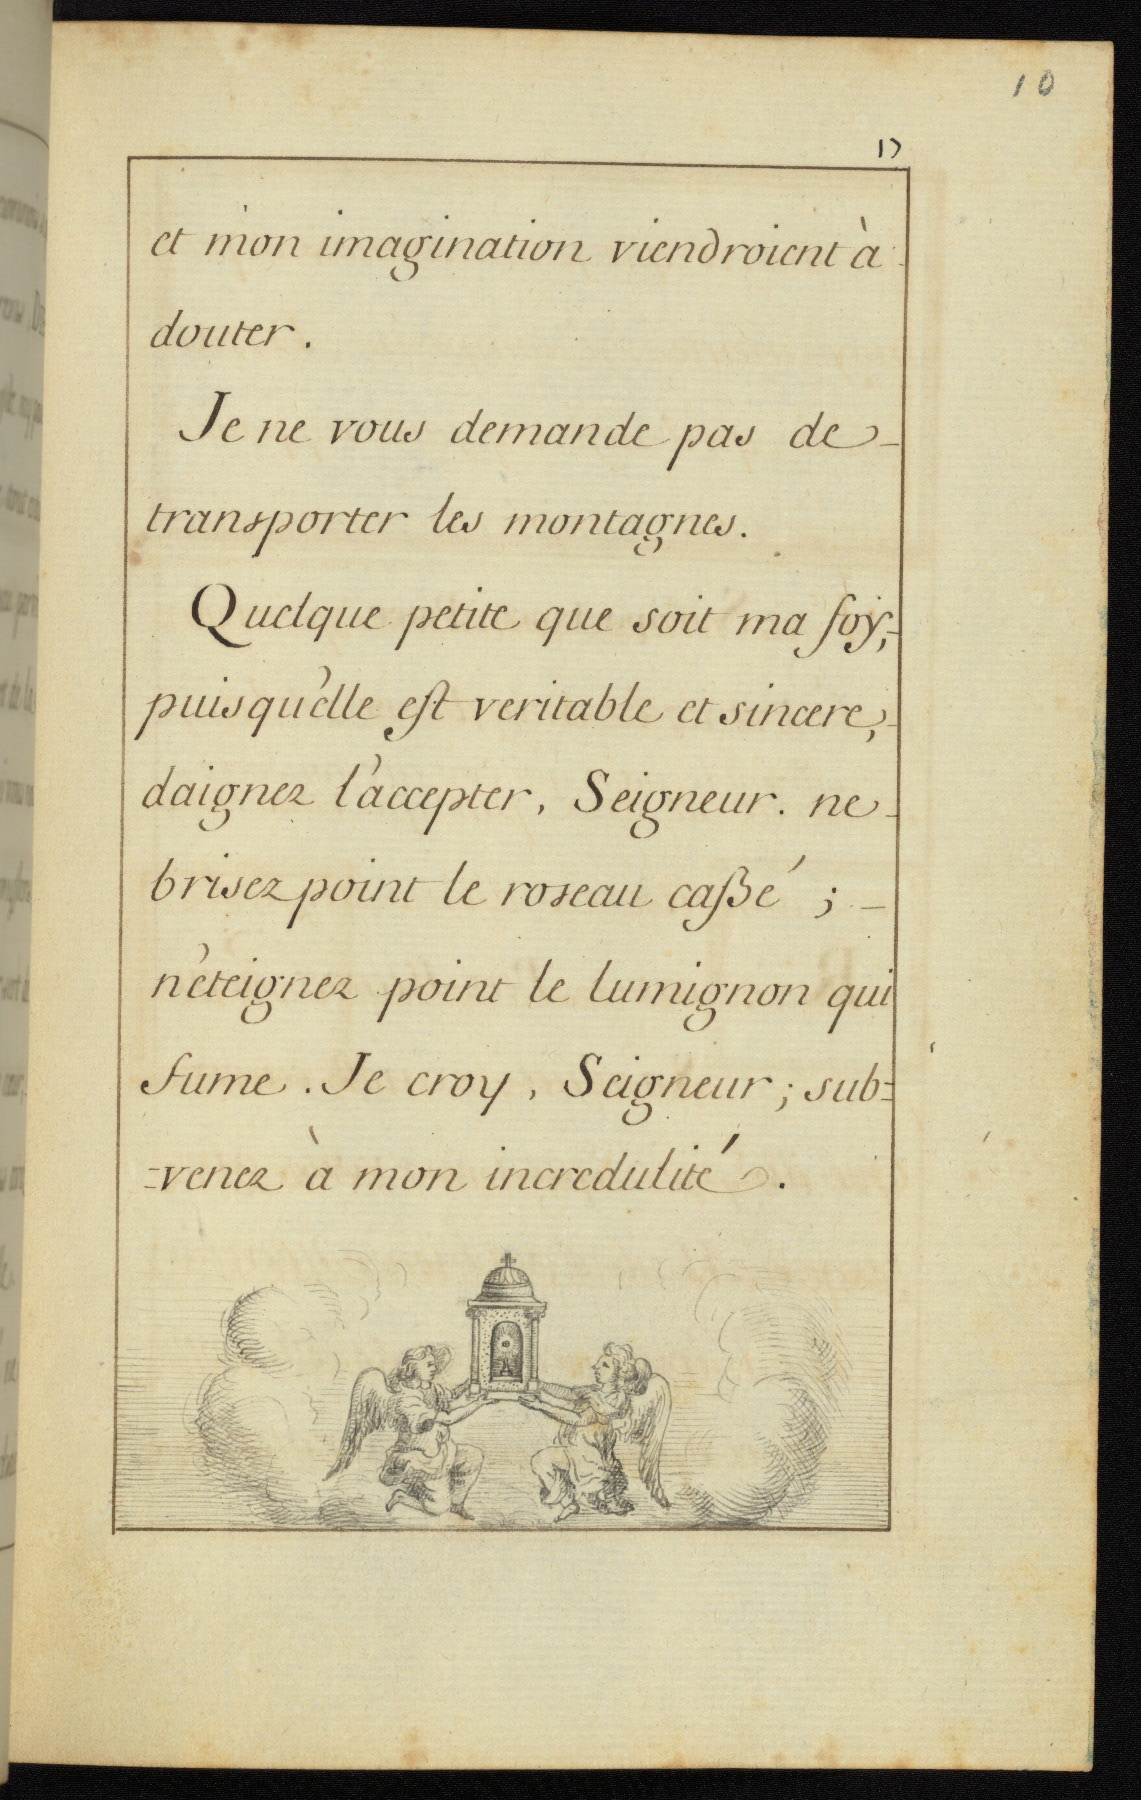 10
17
et mon imagination viendroient à
douter.
Je ne vous demande pas de
transporter les montagnes.
Quelque petite que soit ma foÿ,
puisqu'elle est veritable et sincere,
daignez l'accepter, Seigneur. ne
brisez point le roseau caßé ;
n'eteignez point le lumignon qui
fume. Je croy, Seigneur; sub=
=venez à mon incredulité.